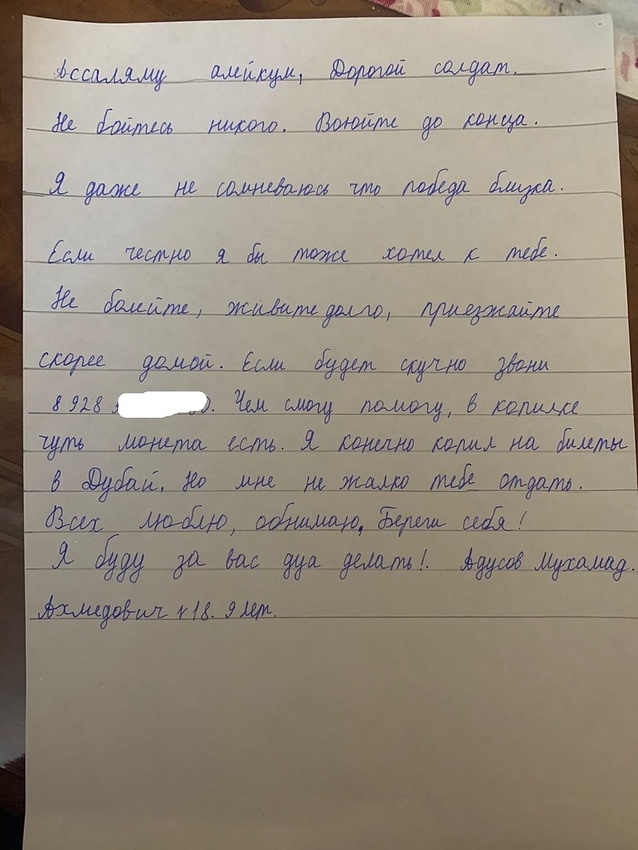 Ассаляму алейкум, Дорогой солдат.
Не бойтесь никого. Воюйте до конца.
Я даже не сомневаюсь что победа близка.
Если честно я бы тоже хотел к тебе.
Не болейте, живите долго, приезжайте
скорее домой. Если будет скучно звони
8 928 . Чем смогу помогу, в копилке
чуть монета есть. Я конечно копил на билеты
в Дубай. Но мне не жалко тебе отдать.
Всех люблю, обнимаю, Береги себя!
Я буду за вас дуа делать!. Адусов Мухамад.
Ахмедович 18. 9 лет.